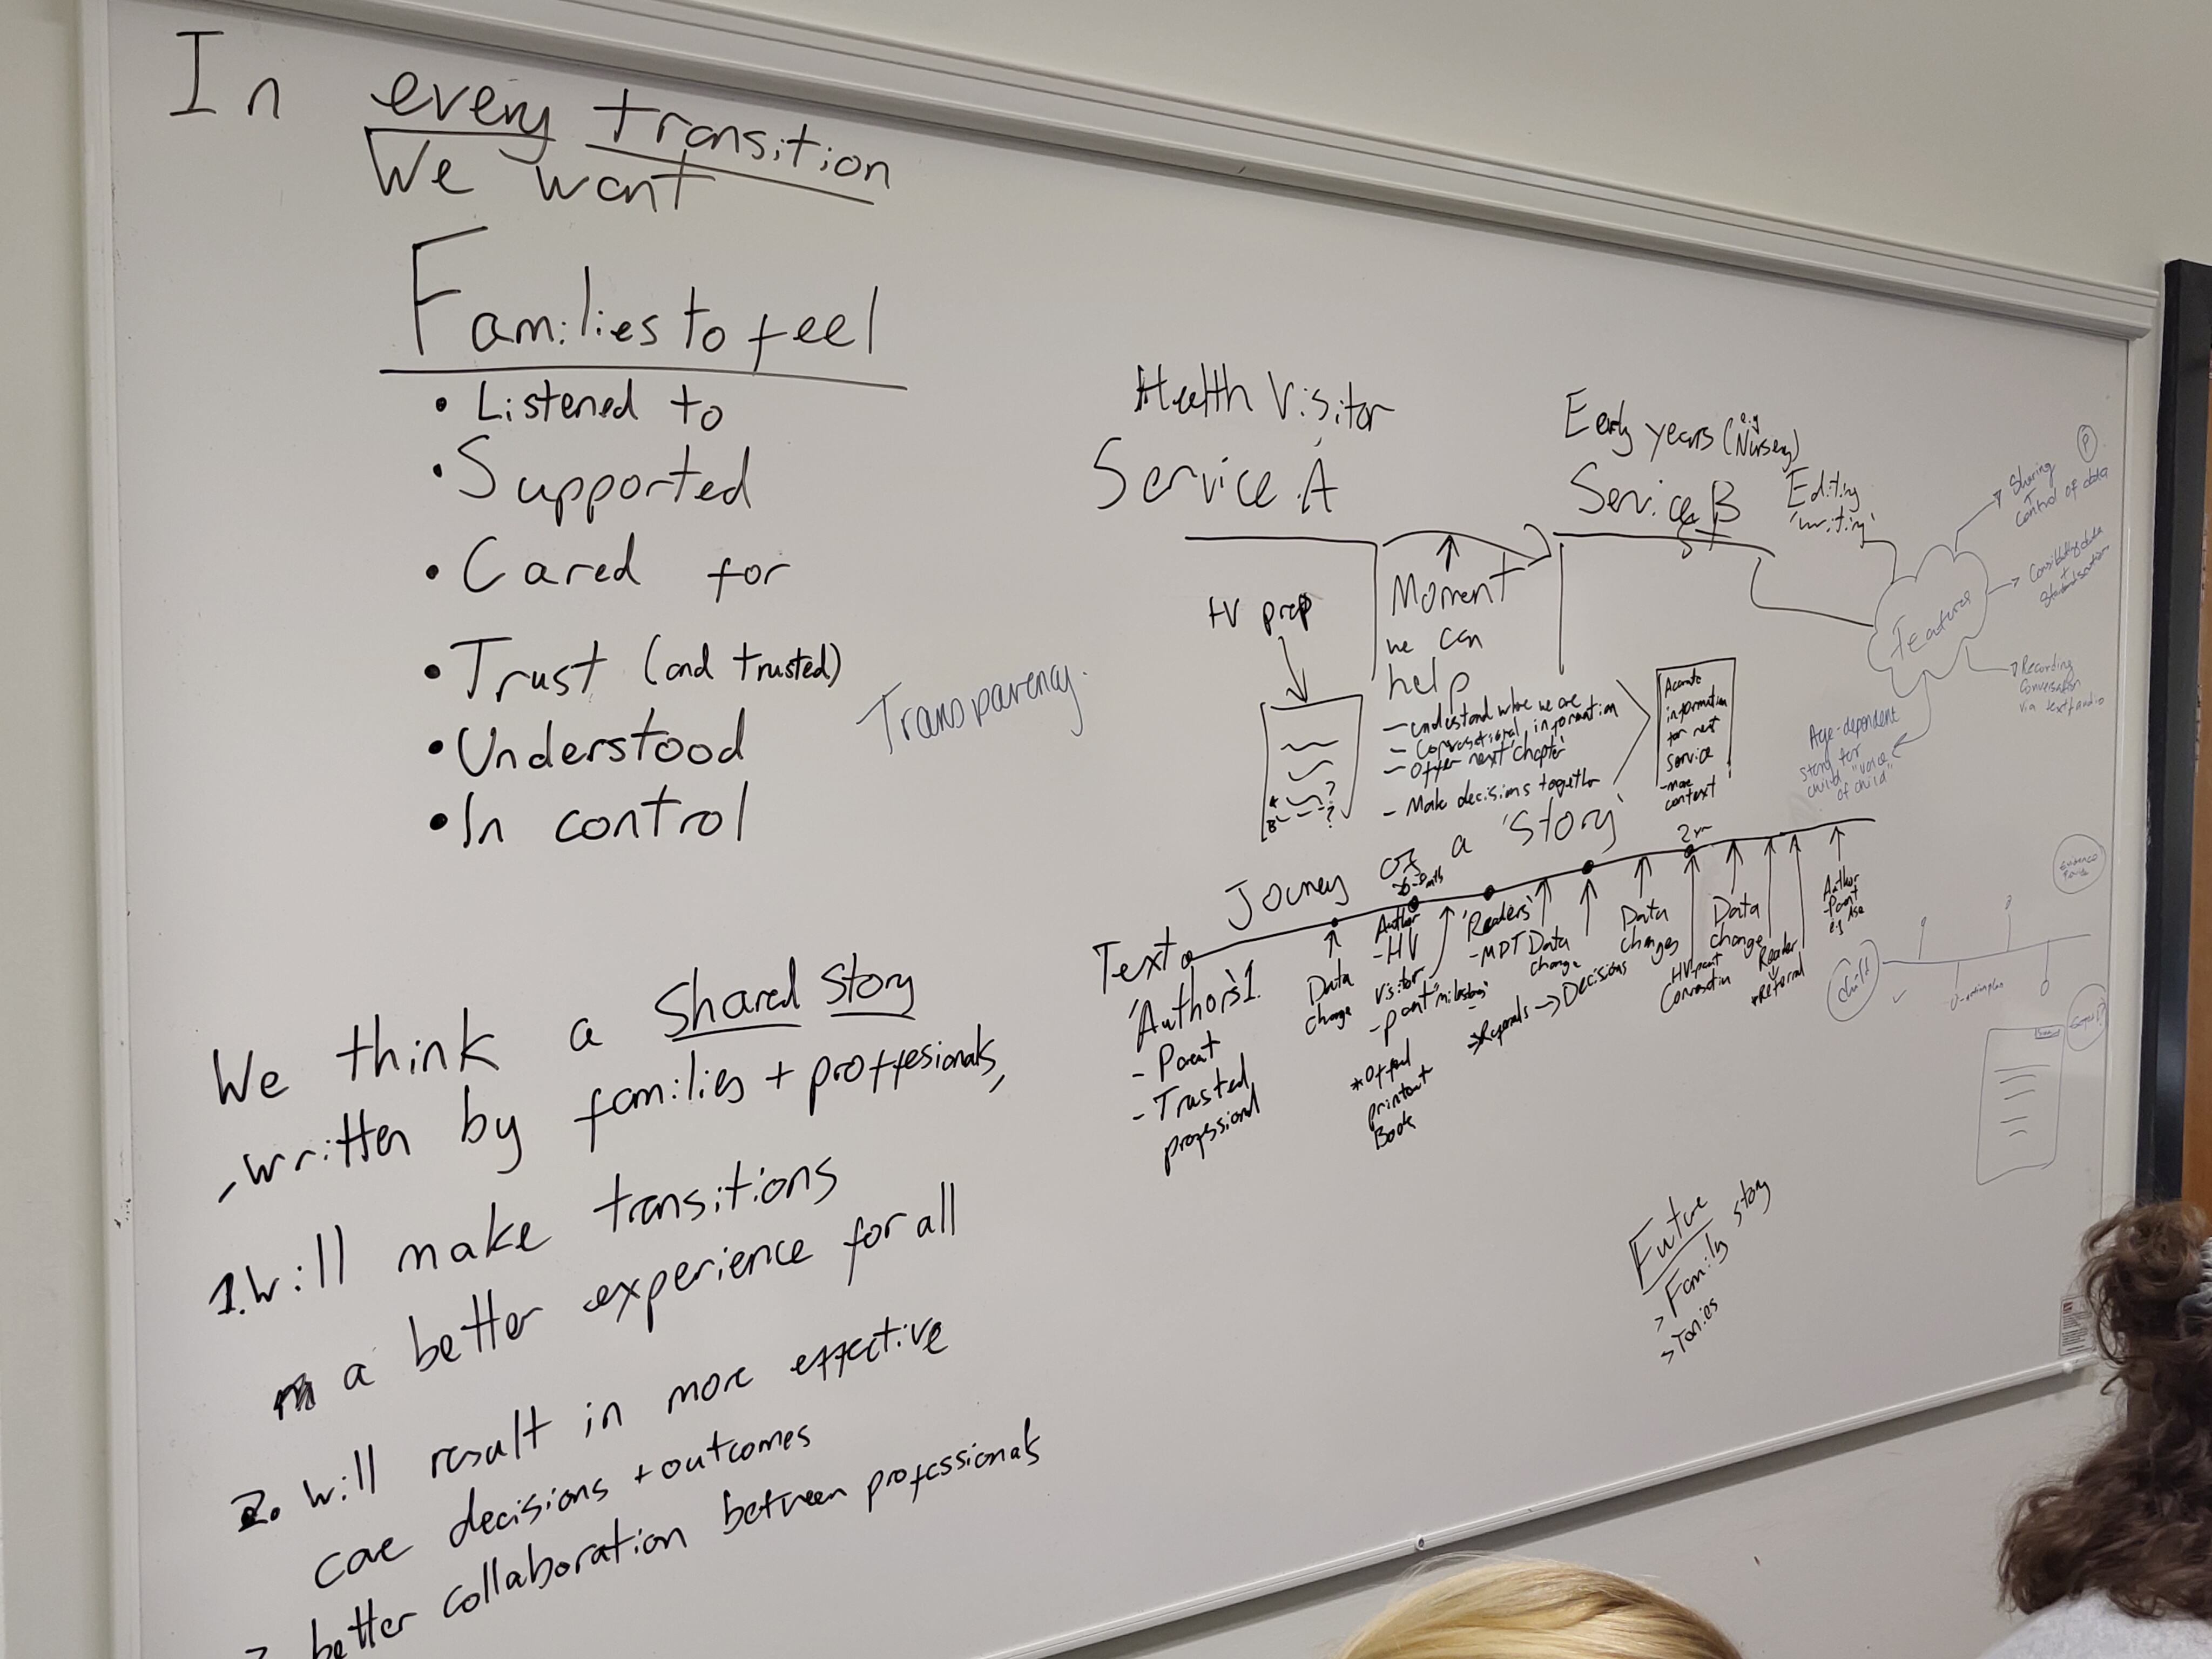 In every transition
We want
Families to feel
• Listened to
• Supported
• Cared for
• Trust (and trusted)
Transparency.
• Understood
• In control
We think a Shared Story
, written by families + proffesionals,
1. Will make transitions
a better experience for all
2. Will result in more effective
care decisions + outcomes
better collaboration between professionals
Health Visitor
Service A
Early years (e.g Nursery)
Service B
HV prep
Moment
we can
help
- understand where we are
- Conversational information
- Offer next 'chapter'
- Make decisions together
Accurate
information
for next
service
- more
context
Editing
'writing'
Features
Sharing
Control of data
P
+
Recording
Conversation
via text/audio
Age-dependent
story for
child "voice
of child"
Journey of a 'Story'
Text
'Authors' 1.
- Parent
- Trusted
professional
Data
change
Author
- HV
visitor
- parent 'milestones'
* Offered
printout
Book
'Readers'
- MDT
* Referrals → Decisions
Data
change
Data
changes
HV-parent
Conversation
Data
change
Reader
* Referral
Author
- Parent
e.g. ASQ
Child
Future
> Family story
> stories